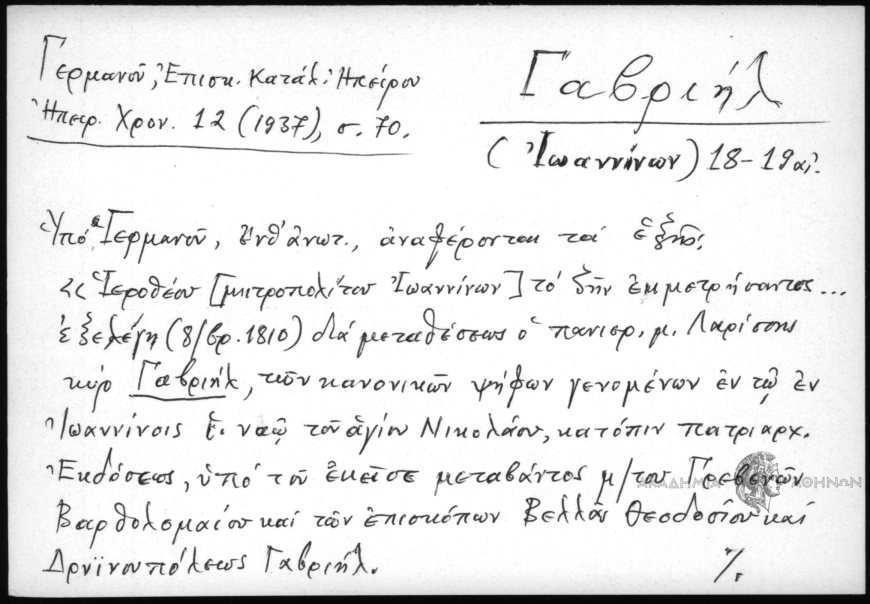 Γερμανοῦ, Ἐπισκ. Κατάλ. Ἠπείρου
Ἠπειρ. Χρον. 12 (1937), σ. 70.
Γαβριήλ
(Ἰωαννίνων) 18-19 αἰ.
Ὑπό Γερμανοῦ, ἔνθ' ἀνωτ., ἀναφέρονται τά ἑξῆς:
<<Ἱεροθέου [μητροπολίτου Ἰωαννίνων] τό ζῆν ἐκμετρήσαντος...
ἐξελέγη (8/βρ. 1810) διά μεταθέσεως ὁ πανιερ. μ. Λαρίσσης
κύρ Γαβριήλ, τῶν κανονικῶν ψήφων γενομένων ἐν τῷ ἐν
Ἰωαννίνοις ἱ. ναῷ τοῦ ἁγίου Νικολάου, κατόπιν πατριαρχ.
Ἐκδόσεως, ὑπό τοῦ ἐκεῖσε μεταβάντος μ/του Γρεβενῶν
Βαρθολομαίου καί τῶν ἐπισκόπων Βελλᾶς Θεοδοσίου καί
Δρυϊνουπόλεως Γαβριήλ. %.
ΑΚΑΔΗΜΙΑ ΑΘΗΝΩΝ